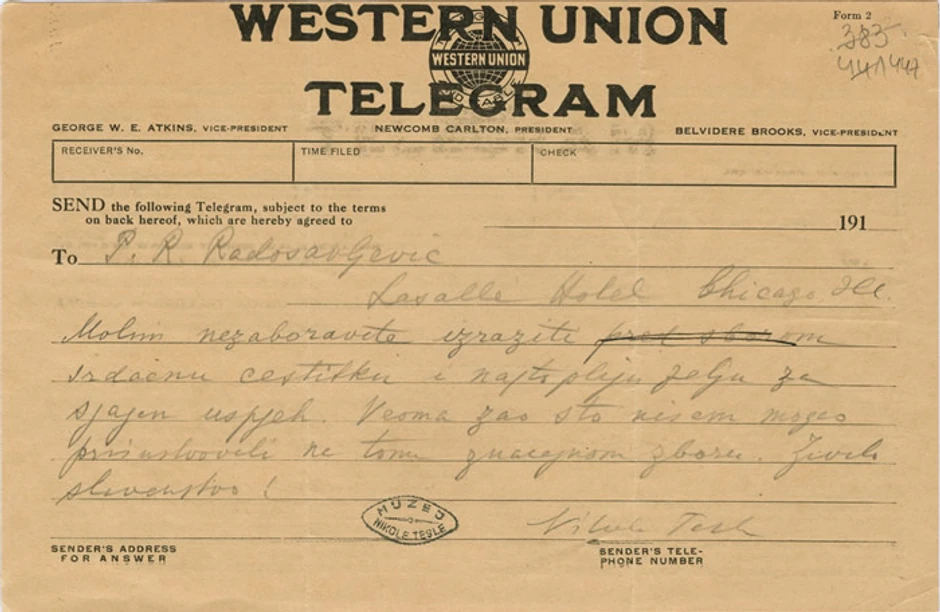 WESTERN UNION
WESTERN UNION
TELEGRAM
Form 2
383
441 447
GEORGE W. E. ATKINS, VICE-PRESIDENT NEWCOMB CARLTON, PRESIDENT BELVIDERE BROOKS, VICE-PRESIDENT
RECEIVER'S No. TIME FILED CHECK
SEND the following Telegram, subject to the terms
on back hereof, which are hereby agreed to
191
To P. R. Radosavljevic
Lasalle Hotel Chicago Ill.
Molim nezaboravite izraziti pred zborom
srdacnu cestitku i najtopliju zelju za
sjajan uspjeh. Veoma zao sto nisam mogao
prisustvovati na tomu znacajnom zboru. Zivilo
slavenstvo!
Nikola Tesla
MUZEJ
NIKOLE TESLE
SENDER'S ADDRESS
FOR ANSWER
SENDER'S TELE-
PHONE NUMBER